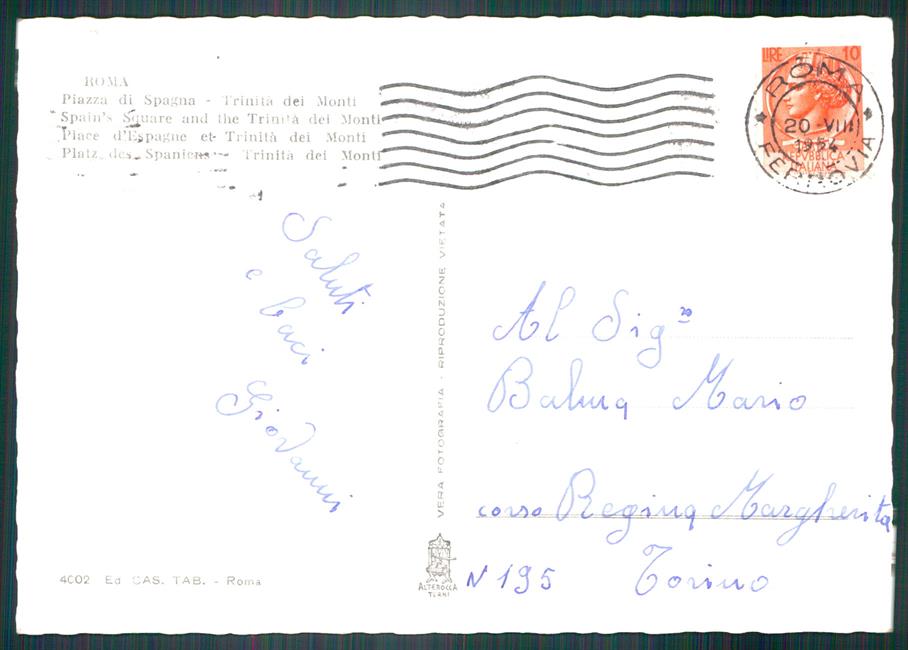 ROMA
Piazza di Spagna - Trinità dei Monti
Spain's Square and the Trinità dei Monti
Place d'Espagne et Trinità dei Monti
Platz des Spaniens - Trinità dei Monti
LIRE 10
REPVBBLICA
ITALIANA
ROMA
20 VIII
1954
FERROVIA
Saluti
e baci
Giovanni
VERA FOTOGRAFIA - RIPRODUZIONE VIETATA
Al Sigro
Mario
corso Regina Margherita
N 195 Torino
4002 Ed CAS. TAB. - Roma
ALTEROCCA
TERNI